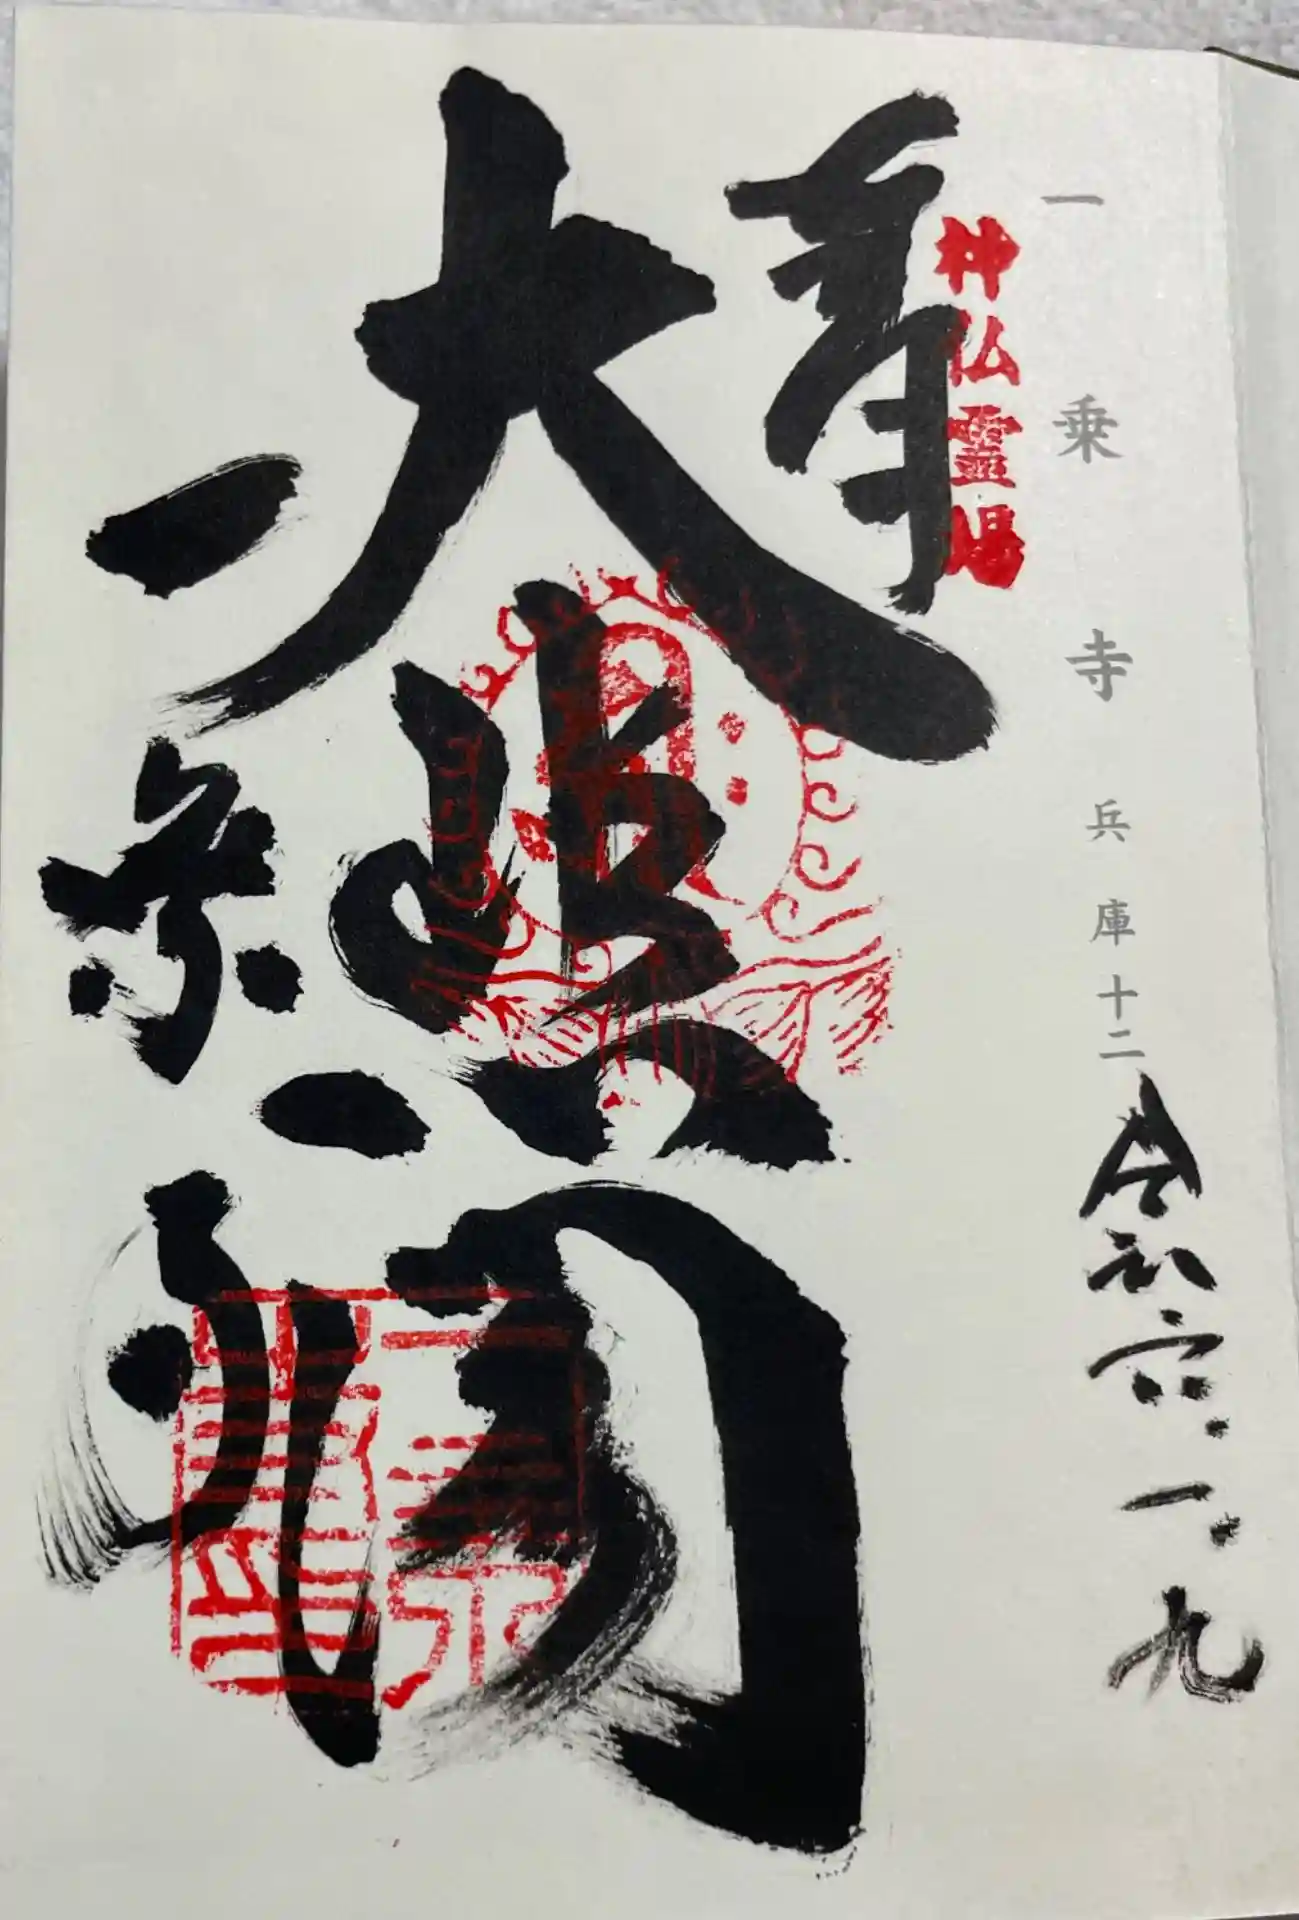 一乗寺 兵庫十二
令和六.一.九
神仏霊場
奉
大悲閣
一乗寺